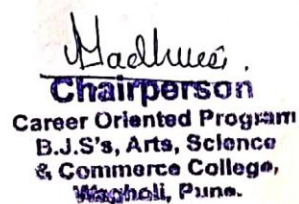 Chairperson
Career Oriented Program
B.J.S's, Arts, Science
& Commerce College,
Wagholi, Pune.